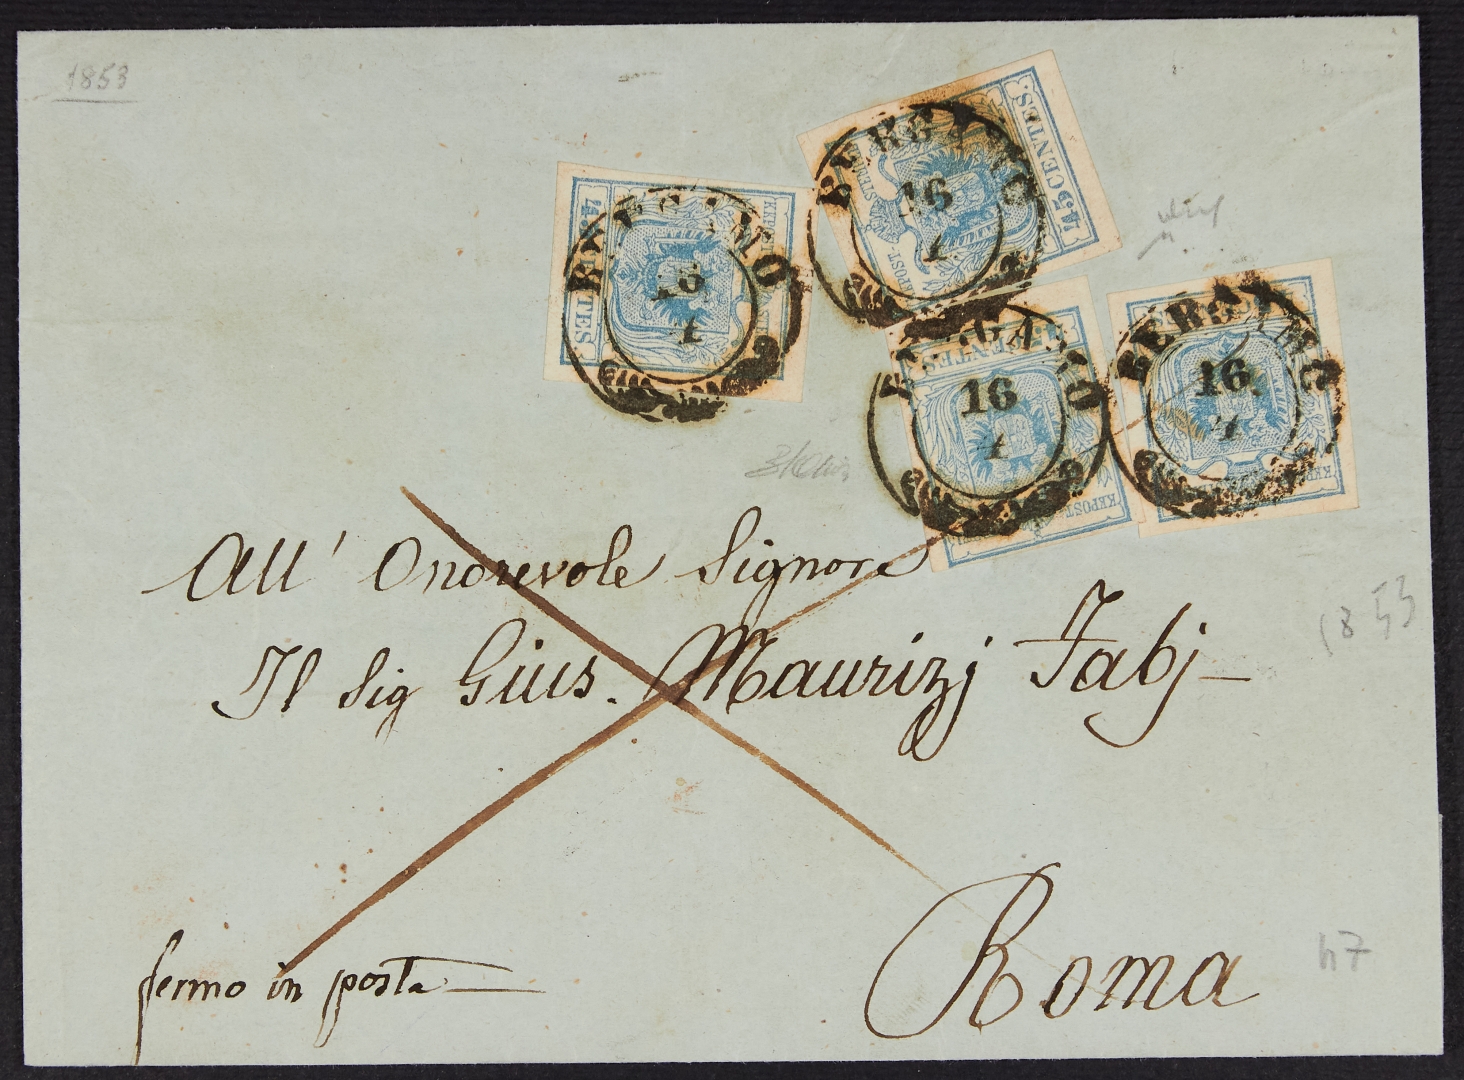 1853
45 CENTES.
BERGAMO
16
BERGAMO
16
4
CENTES.
BERGAMO
16
4
KKPOST-
BERGAMO
16
4
All' Onorevole Signore
Il Sig Gius. Maurizj Fabj
1853
fermo in posta
Roma
47